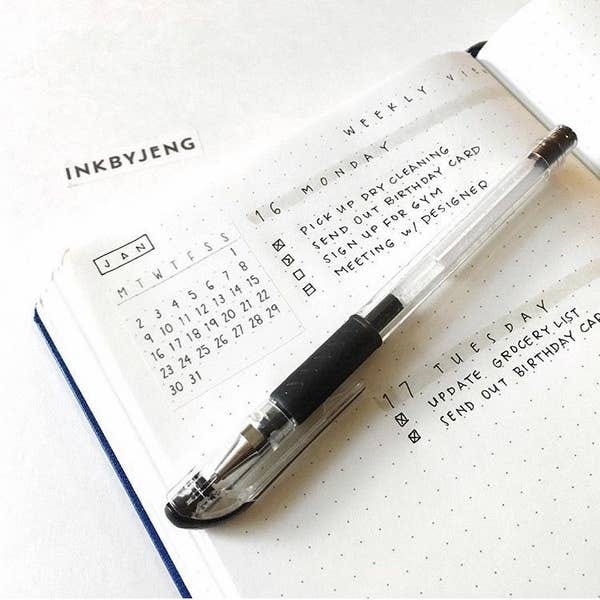 INKBYJENG
WEEKLY
JAN
M T W T F S S
1
2 3 4 5 6 7 8
9 10 11 12 13 14 15
16 17 18 19 20 21 22
23 24 25 26 27 28 29
30 31
16 MONDAY
PICK UP DRY CLEANING
SEND OUT BIRTHDAY CARD
SIGN UP FOR GYM
MEETING W/ DESIGNER
17 TUESDAY
UPDATE GROCERY LIST
SEND OUT BIRTHDAY